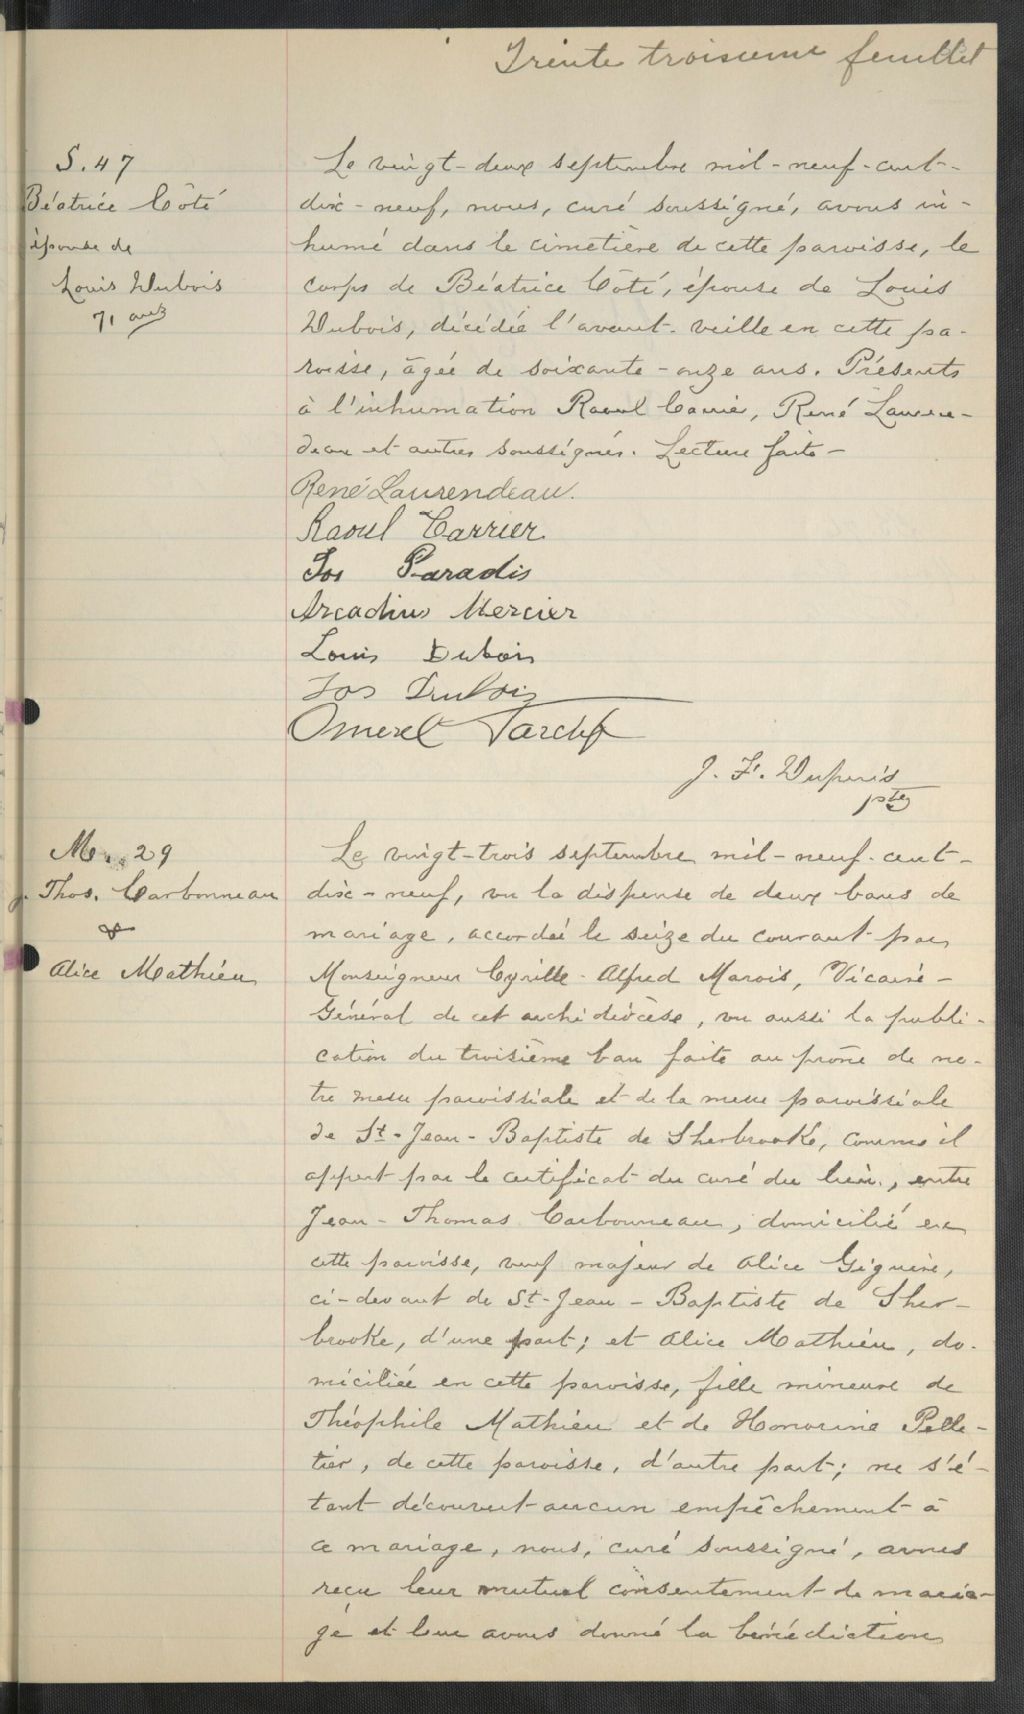 Trente troisieme feuillet
S. 47
Béatrice Côté
épouse de
Louis Dubois
71 ans
Le vingt-deux septembre mil-neuf-cent-
dix-neuf, nous, curé soussigné, avons in-
humé dans le cimetière de cette paroisse, le
corps de Béatrice Côté, épouse de Louis
Dubois, décédée l'avant-veille en cette pa-
roisse, âgée de soixante-onze ans. Présents
à l'inhumation Raoul Carrier, René Lauren-
deau et autres soussignés. Lecture faite-
René Laurendeau.
Raoul Carrier
Jos Paradis
Arcadius Mercier
Louis Dubois
Jos Dubois
Tardif
J. F. Dupuis
ptre
M. 29
J. Thos. Carbonneau
&
Alice Mathieu
Le vingt-trois septembre mil-neuf-cent-
dix-neuf, vu la dispense de deux bans de
mariage, accordée le seize du courant par
Monseigneur Cyrille-Alfred Marois, Vicaire-
Général de cet archidiocèse, vu aussi la publi-
cation du troisième ban faite au prône de no-
tre messe paroissiale et de la messe paroissiale
de St-Jean-Baptiste de Sherbrooke, comme il
appert par le certificat du curé du lieu, entre
Jean-Thomas Carbonneau, domicilié en
cette paroisse, veuf majeur de Alice Giguère,
ci-devant de St-Jean-Baptiste de Sher-
brooke, d'une part; et Alice Mathieu, do-
miciliée en cette paroisse, fille mineure de
Théophile Mathieu et de Honorine Pelle-
tier, de cette paroisse, d'autre part; ne s'é-
tant découvert aucun empêchement à
ce mariage, nous, curé soussigné, avons
reçu leur mutuel consentement de maria-
ge et leur avons donné la bénédiction